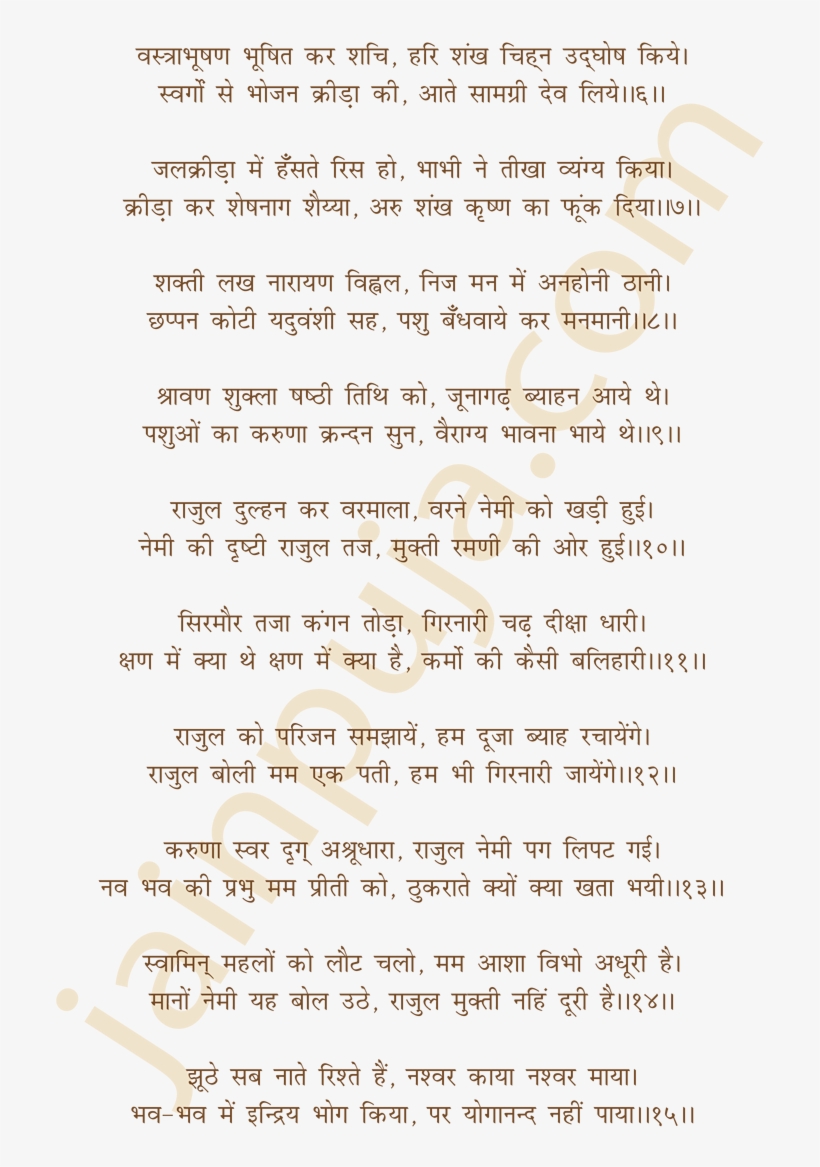 वस्त्राभूषण भूषित कर शचि, हरि शंख चिह्न उद्‌घोष किये।
स्वर्गों से भोजन क्रीड़ा की, आते सामग्री देव लिये।।६।।
जलक्रीड़ा में हँसते रिस हो, भाभी ने तीखा व्यंग्य किया।
क्रीड़ा कर शेषनाग शैय्या, अरु शंख कृष्ण का फूंक दिया।।७।।
शक्ती लख नारायण विह्वल, निज मन में अनहोनी ठानी।
छप्पन कोटी यदुवंशी सह, पशु बँधवाये कर मनमानी।।८।।
श्रावण शुक्ला षष्ठी तिथि को, जूनागढ़ ब्याहन आये थे।
पशुओं का करुणा क्रन्दन सुन, वैराग्य भावना भाये थे।।९।।
राजुल दुल्हन कर वरमाला, वरने नेमी को खड़ी हुई।
नेमी की दृष्टी राजुल तज, मुक्ती रमणी की ओर हुई।।१०।।
सिरमौर तजा कंगन तोड़ा, गिरनारी चढ़ दीक्षा धारी।
क्षण में क्या थे क्षण में क्या है, कर्मो की कैसी बलिहारी।।११।।
राजुल को परिजन समझायें, हम दूजा ब्याह रचायेंगे।
राजुल बोली मम एक पती, हम भी गिरनारी जायेंगे।।१२।।
करुणा स्वर दृग् अश्रूधारा, राजुल नेमी पग लिपट गई।
नव भव की प्रभु मम प्रीती को, ठुकराते क्यों क्या खता भयी।।१३।।
स्वामिन् महलों को लौट चलो, मम आशा विभो अधूरी है।
मानों नेमी यह बोल उठे, राजुल मुक्ती नहिं दूरी है।।१४।।
झूठे सब नाते रिश्ते हैं, नश्वर काया नश्वर माया।
भव-भव में इन्द्रिय भोग किया, पर योगानन्द नहीं पाया।।१५।।
jainpuja.com